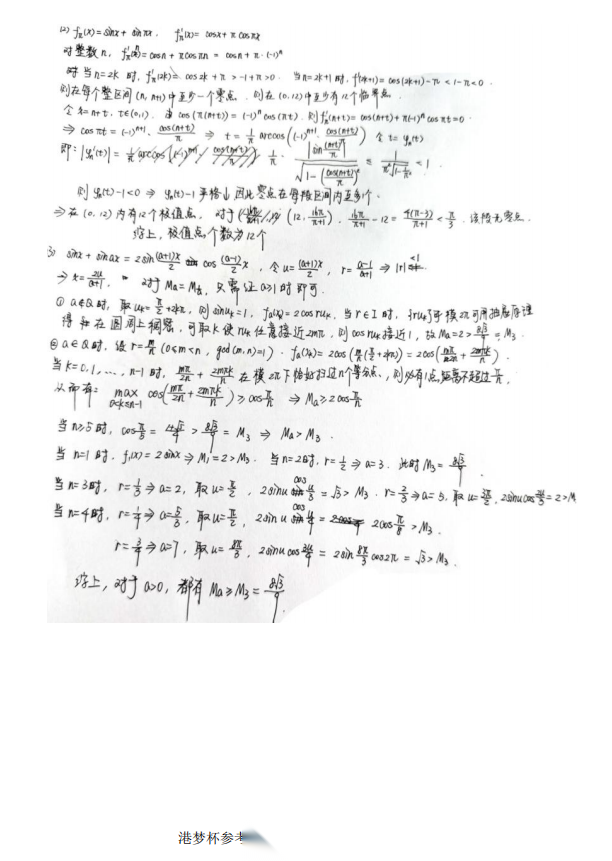 (2) fπ(x) = sinx + sinπx, f'π(x) = cosx + π cosπx
对整数n, f'π(n) = cosn + π cosπn = cosn + π·(-1)ⁿ
当n=2k时, f'π(2k) = cos2k + π > -1+π > 0. 当n=2k+1时, f'(2k+1) = cos(2k+1) - π < 1-π < 0.
则在每个整区间(n, n+1)中至少一个零点. 则在(0,12)中至少有12个临界点.
令x=n+t, t∈(0,1). 由cos(π(n+t)) = (-1)ⁿcos(πt), 则f'π(n+t) = cos(n+t) + π(-1)ⁿcosπt = 0
⇒ cosπt = (-1)ⁿ⁺¹ · cos(n+t)/π ⇒ t = 1/π arccos((-1)ⁿ⁺¹ cos(n+t)/π) 令t = φn(t)
即: |φn'(t)| = 1/π · |sin(n+t)/π| / √(1-(cos(n+t)/π)²) ≤ 1/(π²√(1-1/π²)) < 1.
则φn'(t)-1<0 ⇒ φn(t)-t 严格↓ 因此零点在每段区间内至多1个.
⇒ 在(0,12)内有12个极值点. 对于(12, 16π/(π+1)), 16π/(π+1) - 12 = 4(π-3)/(π+1) < π/3. 该段无零点.
综上, 极值点个数为12个
(3) sinx + sinax = 2sin (a+1)x/2 cos (a-1)x/2, 令u = (a+1)x/2, r = (a-1)/(a+1) ⇒ |r|<1
⇒ x = 2u/(a+1), 对于Ma = M1/a, 只需证a≥1时即可.
① a∉Q时, 取uk = π/2 + 2kπ, 则sinuk = 1, fa(x) = 2cosruk. 当r∈I时, {ruk}于模2π可用抽屉原理
得知在圆周上稠密, 可取k使ruk任意接近2mπ, 则cosruk接近1, 故Ma = 2 > 8√3/9 = M3.
② a∈Q时, 设r = m/n (0≤m<n, gcd(m,n)=1). fa(xk) = 2cos(m/n(π/2+2kπ)) = 2cos(mπ/2n + 2mπk/n).
当k=0,1,…,n-1时, mπ/2n + 2mπk/n 在模2π下恰好扫过n个等分点, 则必有1点距离不超过π/n,
从而有: max 0≤k≤n-1 cos(mπ/2n + 2mπk/n) ≥ cosπ/n ⇒ Ma ≥ 2cosπ/n
当n≥5时, cosπ/5 = > 8√3/9 = M3 ⇒ Ma > M3.
当n=1时, f1(x) = 2sinx ⇒ M1 = 2 > M3. 当n=2时, r=1/2 ⇒ a=3. 此时M3 = 8√3/9.
当n=3时, r=1/3 ⇒ a=2, 取u=π/2, 2sinu cos u/3 = √3 > M3. r=2/3 ⇒ a=5, 取u=3π/2, 2sinucos2u/3 = 2 > M
当n=4时, r=1/4 ⇒ a=5/3, 取u=π/2, 2sinu cos u/4 = 2cosπ/8 > M3.
r=3/4 ⇒ a=7, 取u=8π/3, 2sinu cos3u/4 = 2sin8π/3 cos2π = √3 > M3.
综上, 对于a>0, 都有Ma ≥ M3 = 8√3/9.
港梦杯参考